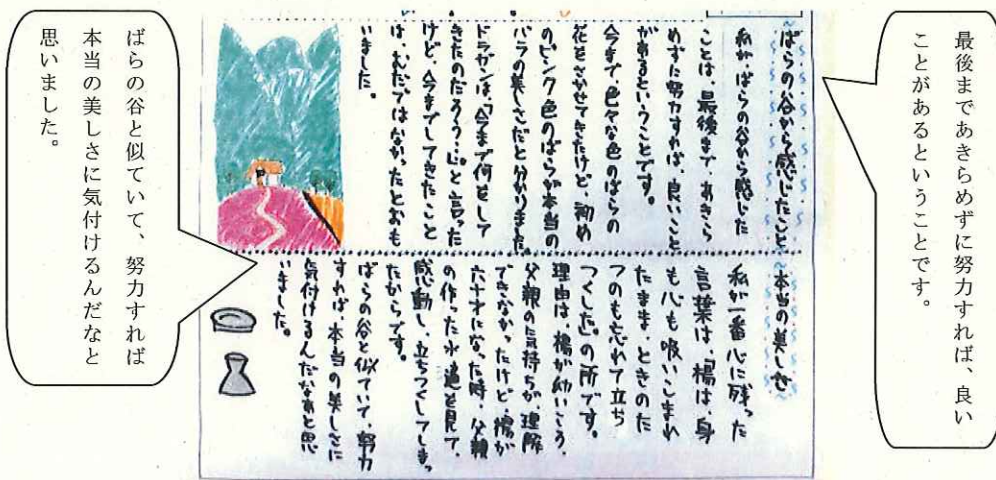 最後まであきらめずに努力すれば、良い
ことがあるということです。
ばらの谷から感じたこと
私が、ばらの谷から感じた
ことは、最後まで、あきら
めずに努力すれば、良いこと
があるということです。
今まで、色々な色のばらの
花をさかせてきたけど、初め
のピンク色のばらが本当の
バラの美しさだと分かりました。
ドラガンは、「今まで何をして
きたのだろう…。」と言った
けど、今までしてきたこと
は、むだではなかったとおも
いました。
本当の美しさ
私が一番心に残った
言葉は、「楊は、身
も心も吸いこまれ
たまま、ときのた
つのも忘れて立ち
つくした。」の所です。
理由は、楊が幼いころ、
父親の気持ちが、理解
できなかったけど、楊が
六十才になった時、父親
の作った水滴を見て、
感動し、立ちつくしてしまっ
たからです。
ばらの谷と似ていて、努力
すれば、本当の美しさに
気付けるんだなあと思
いました。
ばらの谷と似ていて、努力すれば
本当の美しさに気付けるんだなと
思いました。